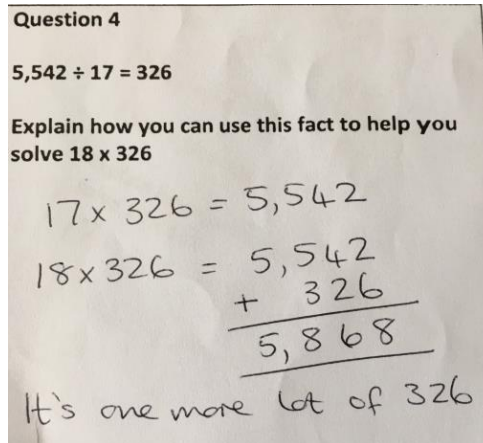 Question 4
5,542 ÷ 17 = 326
Explain how you can use this fact to help you
solve 18 x 326
17 x 326 = 5,542
18 x 326 = 5,542
+ 326
5,868
It's one more lot of 326